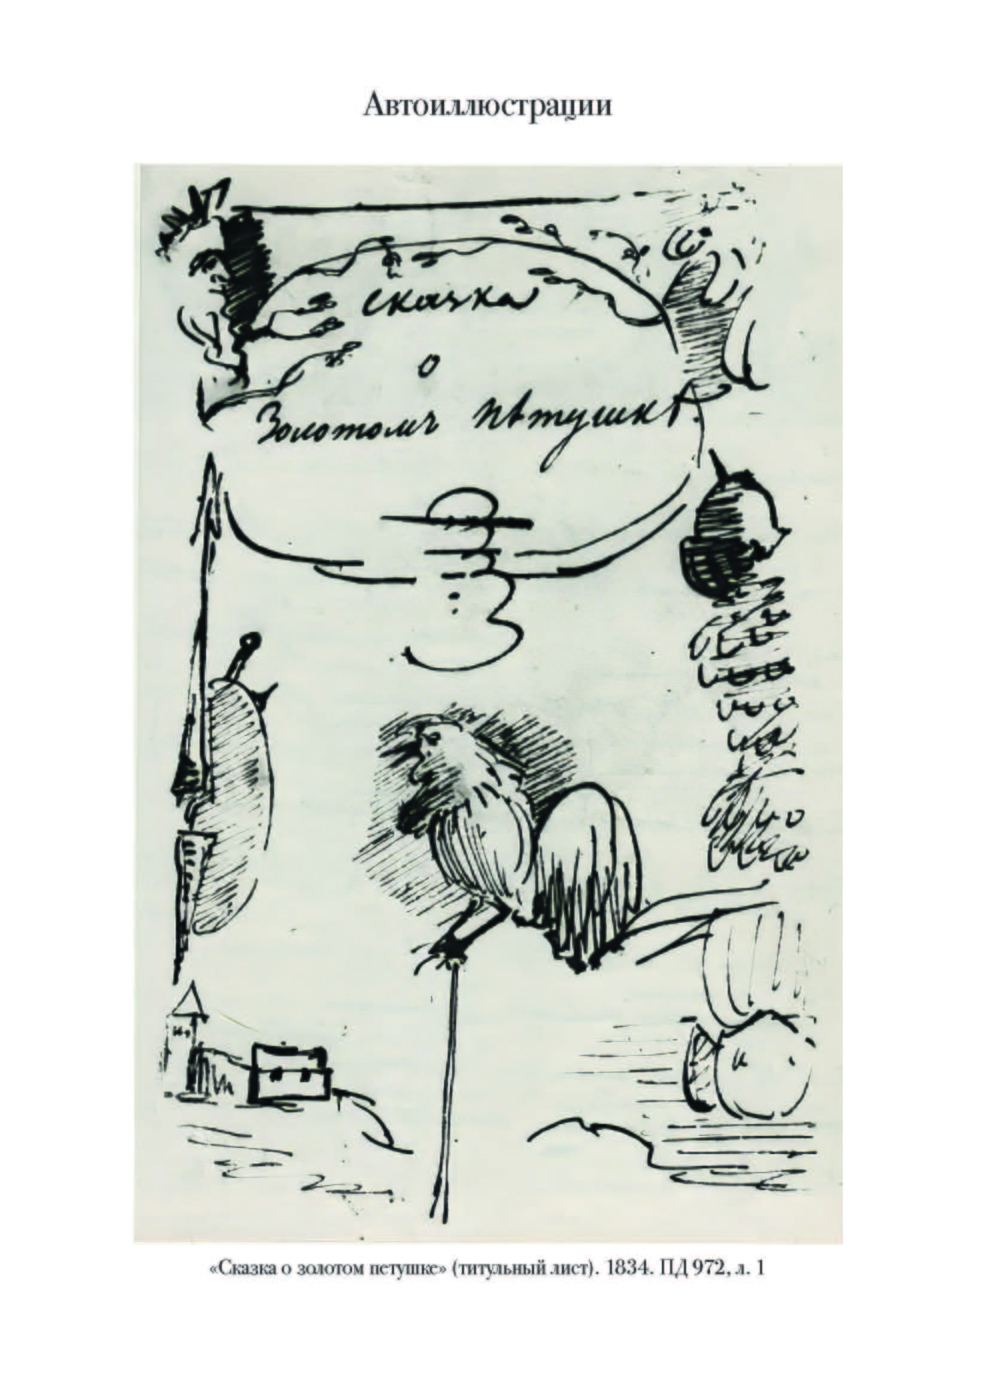 Автоиллюстрации
Сказка
о
Золотомъ Пѣтушкѣ.
«Сказка о золотом петушке» (титульный лист). 1834. ПД 972, л. 1